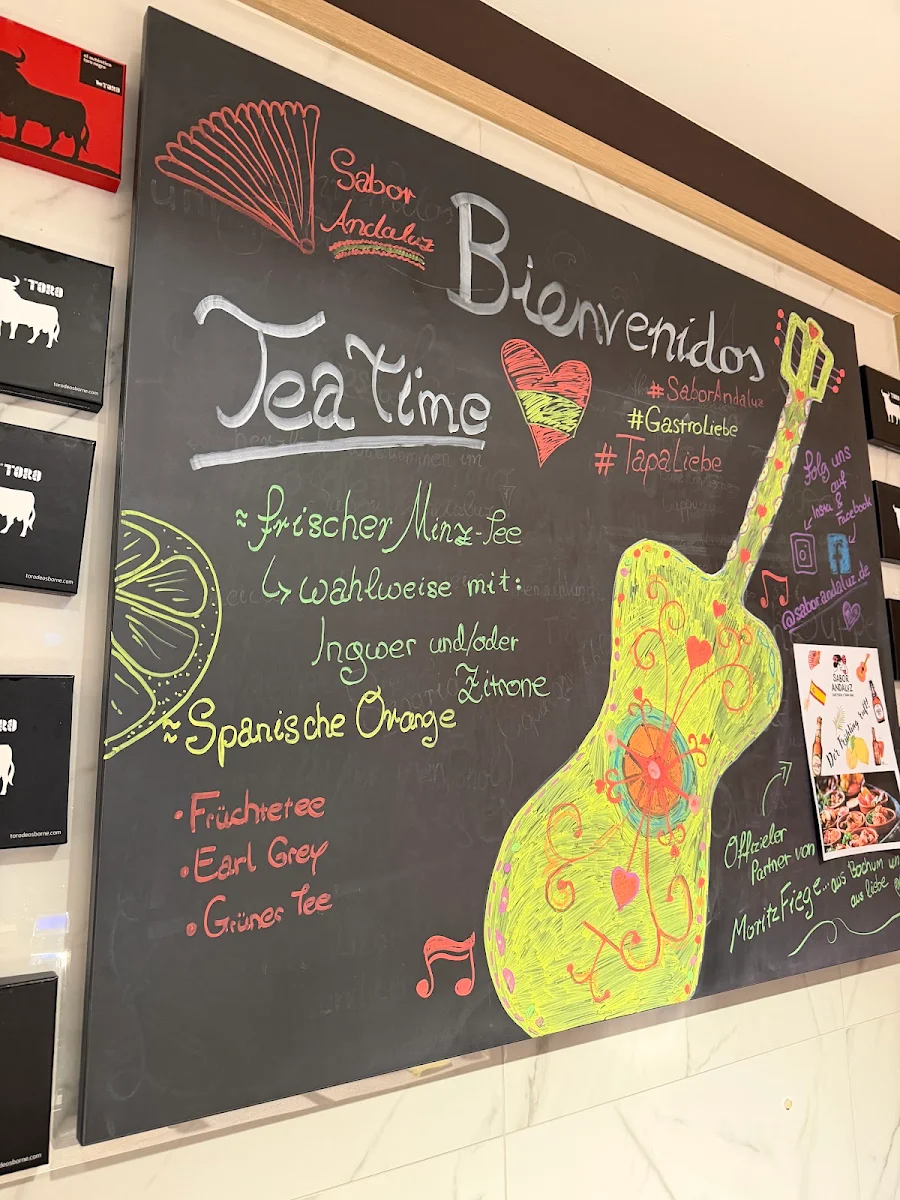 el auténtico
toro negro
the TORO
Sabor
Andaluz
Bienvenidos
TORO
torodeosborne.com
Tea Time
#SaborAndaluz
#GastroLiebe
#TapaLiebe
Folg uns
auf
Insta &
Facebook
@saborandaluz.de
≈ frischer Minz-Tee
↳ wahlweise mit:
Ingwer und/oder
Zitrone
≈ Spanische Orange
• Früchtetee
• Earl Grey
• Grüner Tee
TORO
torodeosborne.com
torodeosborne.com
torodeosborne.com
SABOR
ANDALUZ
Der Frühling ruft!
Offizieler
Partner von
Moritz Fiege... aus Bochum
aus liebe